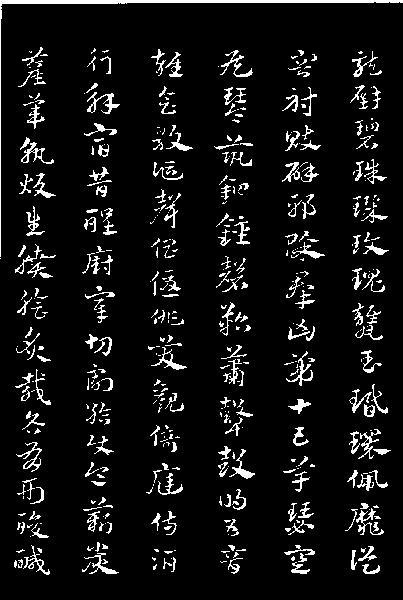 龍璧碧珠璣玫瑰甕玉玦環佩靡從
容射魃辟邪除群凶第十五竽瑟空
侯琴筑箏鐘磬鞀簫鼙鼓鳴五音
雜會歌謳聲倡優俳笑觀倚庭侍酒
行觴宿昔酲廚宰切割給使令薪炭
萑葦孰炊生膹膾炙胾各有形酸鹹